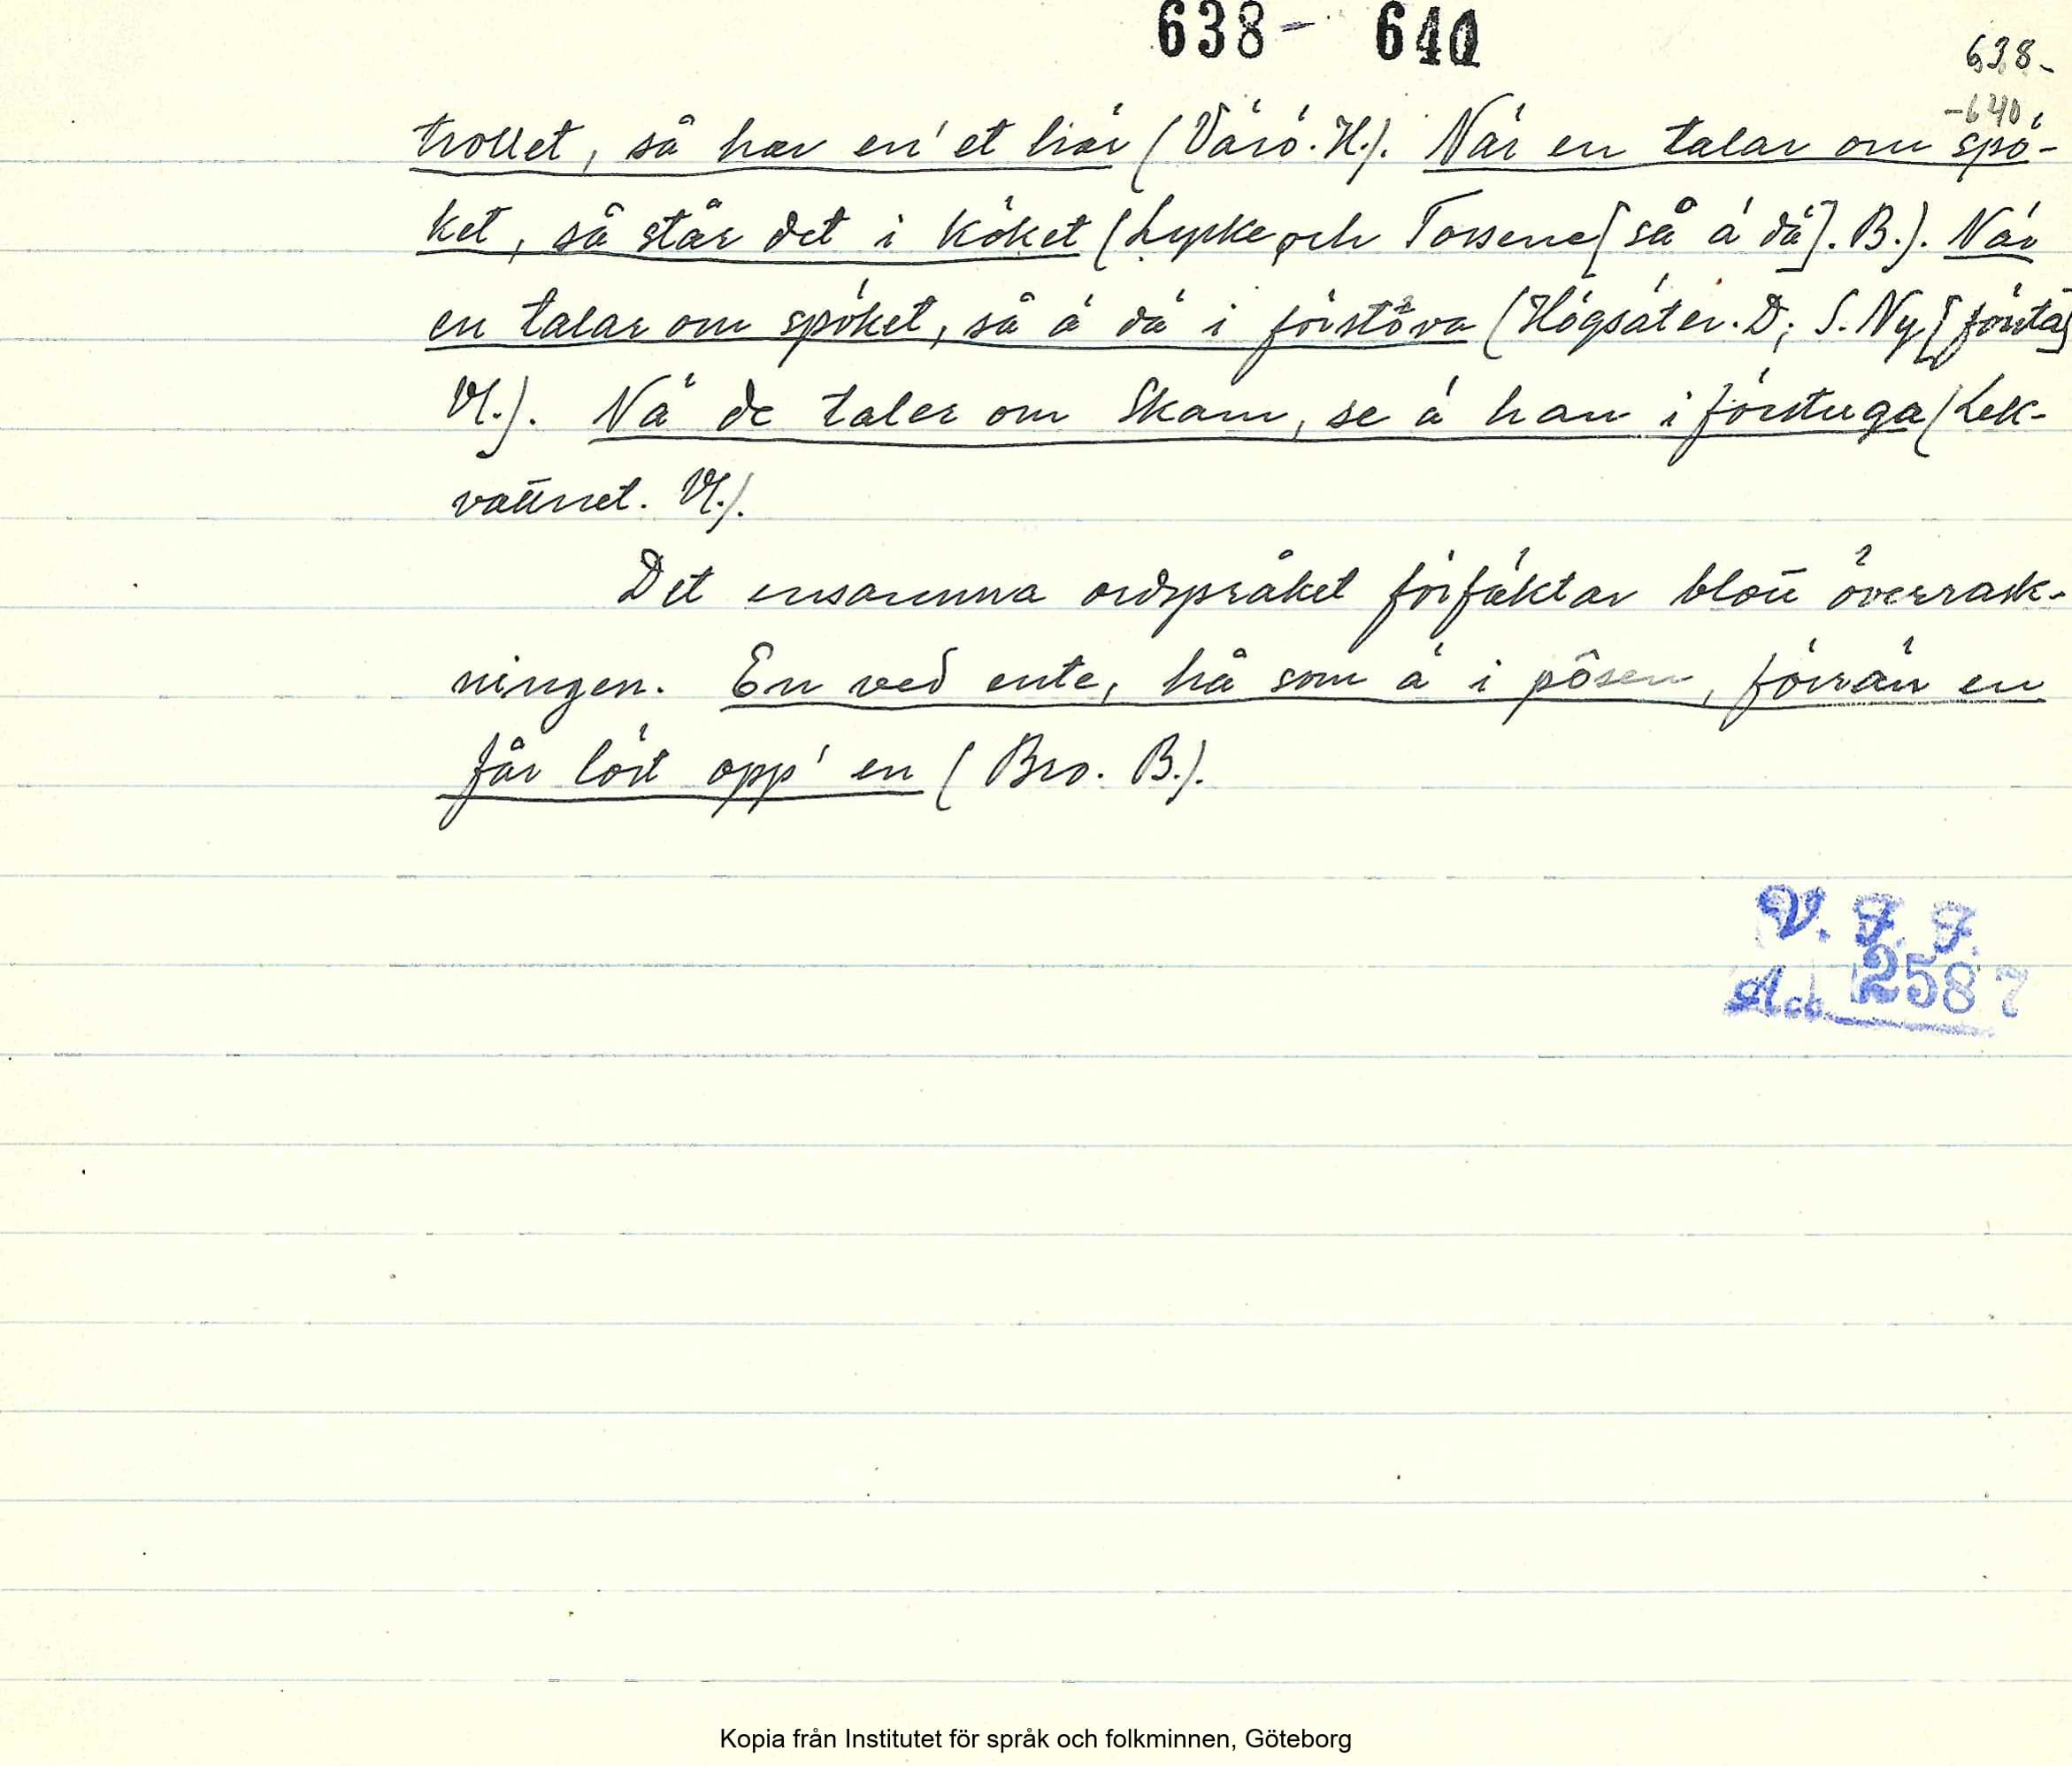 638 – 640
638 –
– 640.
trollet, så har en' et här (Värö. H.). När en talar om spö-
ket, så står det i köket (Lycke och Torsene [så ä dä]. B.). När
en talar om spöket, så ä dä i förstöva (Högsäter. D; S. Ny [första]
Vl.). Nä de taler om Skam, se ä han i förstuga (Lek-
vattnet. Vl.).
Det ensamma ordspråket förfäktar blott överrask-
ningen. En ved ente, hå som ä i pôsen, förrän en
får löst opp' en (Bro. B.).
V. F. F.
Acc 2587
Kopia från Institutet för språk och folkminnen, Göteborg